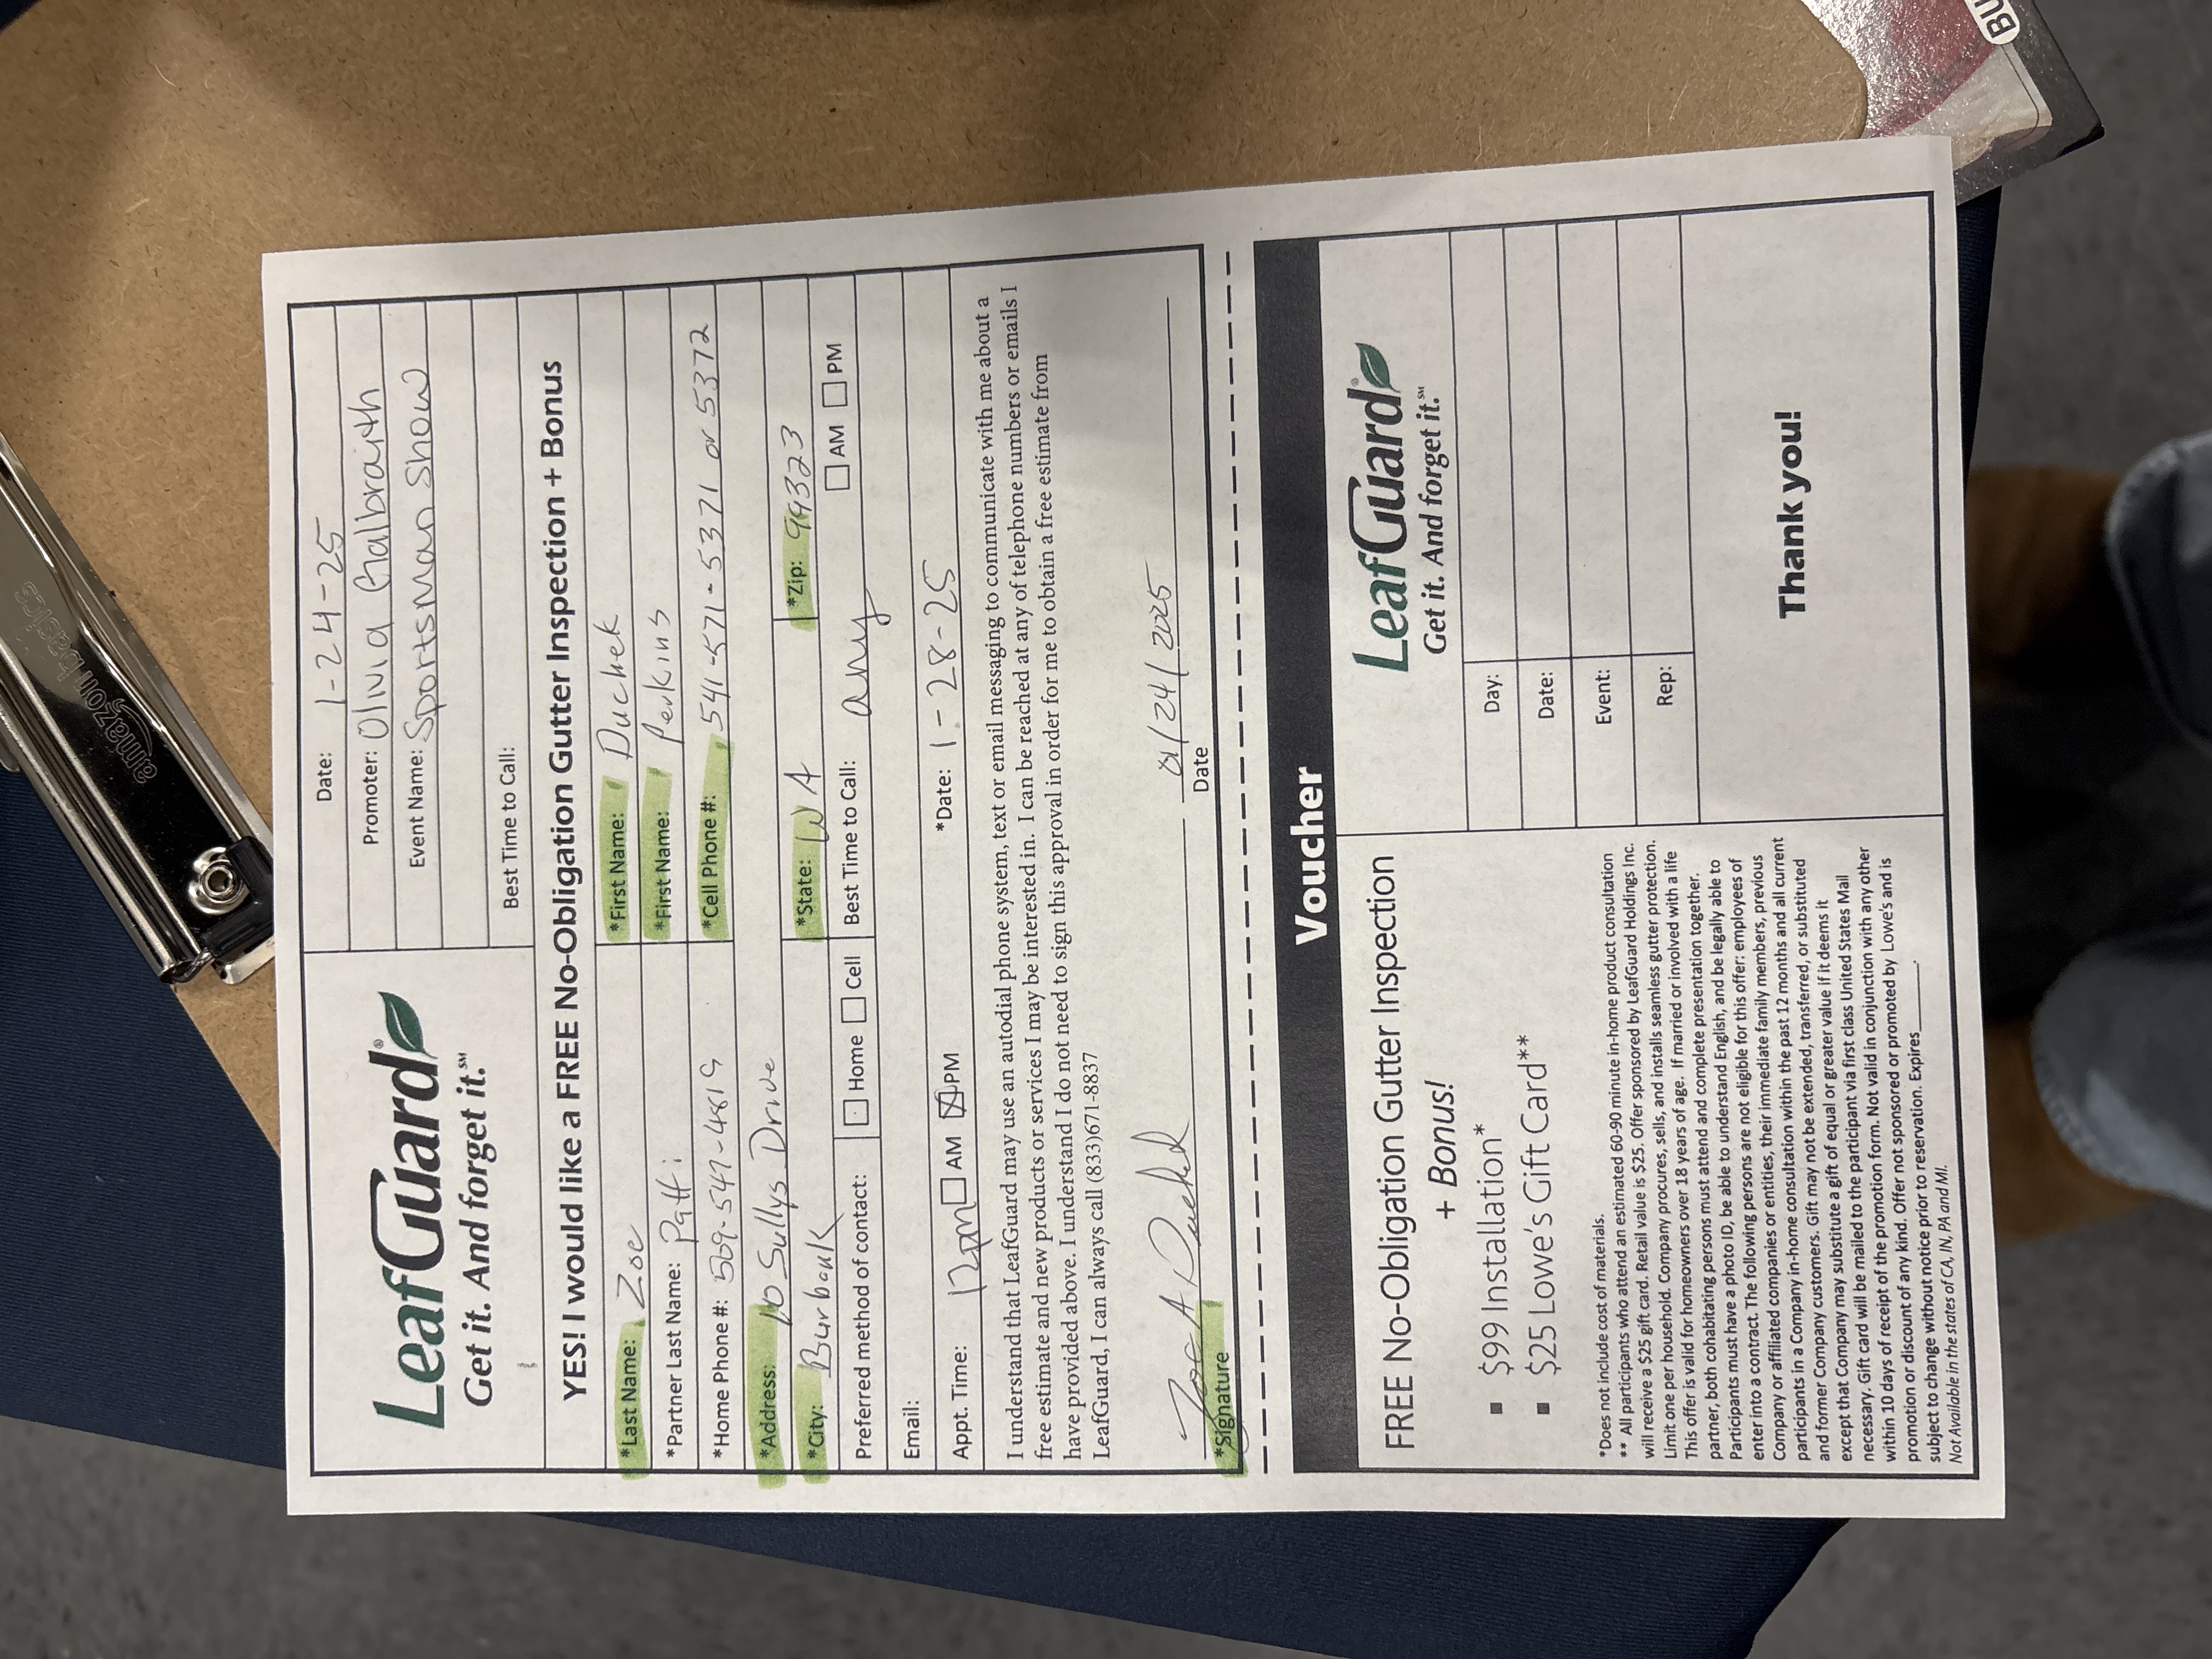 amazon basics
LeafGuard®
Get it. And forget it.℠
Date: 1-24-25
Promoter: Olivia Galbraith
Event Name: Sportsman Show
Best Time to Call:
YES! I would like a FREE No-Obligation Gutter Inspection + Bonus
*Last Name: Zoe *First Name: Duchek
*Partner Last Name: Patti *First Name: Perkins
*Home Phone #: 509-547-4819 *Cell Phone #: 541-571-5371 or 5372
*Address: 10 Sullys Drive
*City: Burbank *State: WA *Zip: 99323
Preferred method of contact: Home Cell Best Time to Call: any AM PM
Email:
Appt. Time: 12pm AM PM *Date: 1-28-25
I understand that LeafGuard may use an autodial phone system, text or email messaging to communicate with me about a
free estimate and new products or services I may be interested in. I can be reached at any of telephone numbers or emails I
have provided above. I understand I do not need to sign this approval in order for me to obtain a free estimate from
LeafGuard, I can always call (833)671-8837
Zoe A Duchek 01/24/2025
*Signature Date
Voucher
FREE No-Obligation Gutter Inspection
+ Bonus!
▪ $99 Installation*
▪ $25 Lowe's Gift Card**
*Does not include cost of materials.
** All participants who attend an estimated 60-90 minute in-home product consultation
will receive a $25 gift card. Retail value is $25. Offer sponsored by LeafGuard Holdings Inc.
Limit one per household. Company procures, sells, and installs seamless gutter protection.
This offer is valid for homeowners over 18 years of age. If married or involved with a life
partner, both cohabitating persons must attend and complete presentation together.
Participants must have a photo ID, be able to understand English, and be legally able to
enter into a contract. The following persons are not eligible for this offer: employees of
Company or affiliated companies or entities, their immediate family members, previous
participants in a Company in-home consultation within the past 12 months and all current
and former Company customers. Gift may not be extended, transferred, or substituted
except that Company may substitute a gift of equal or greater value if it deems it
necessary. Gift card will be mailed to the participant via first class United States Mail
within 10 days of receipt of the promotion form. Not valid in conjunction with any other
promotion or discount of any kind. Offer not sponsored or promoted by Lowe's and is
subject to change without notice prior to reservation. Expires________.
Not Available in the states of CA, IN, PA and MI.
LeafGuard®
Get it. And forget it.℠
Day:
Date:
Event:
Rep:
Thank you!
BU